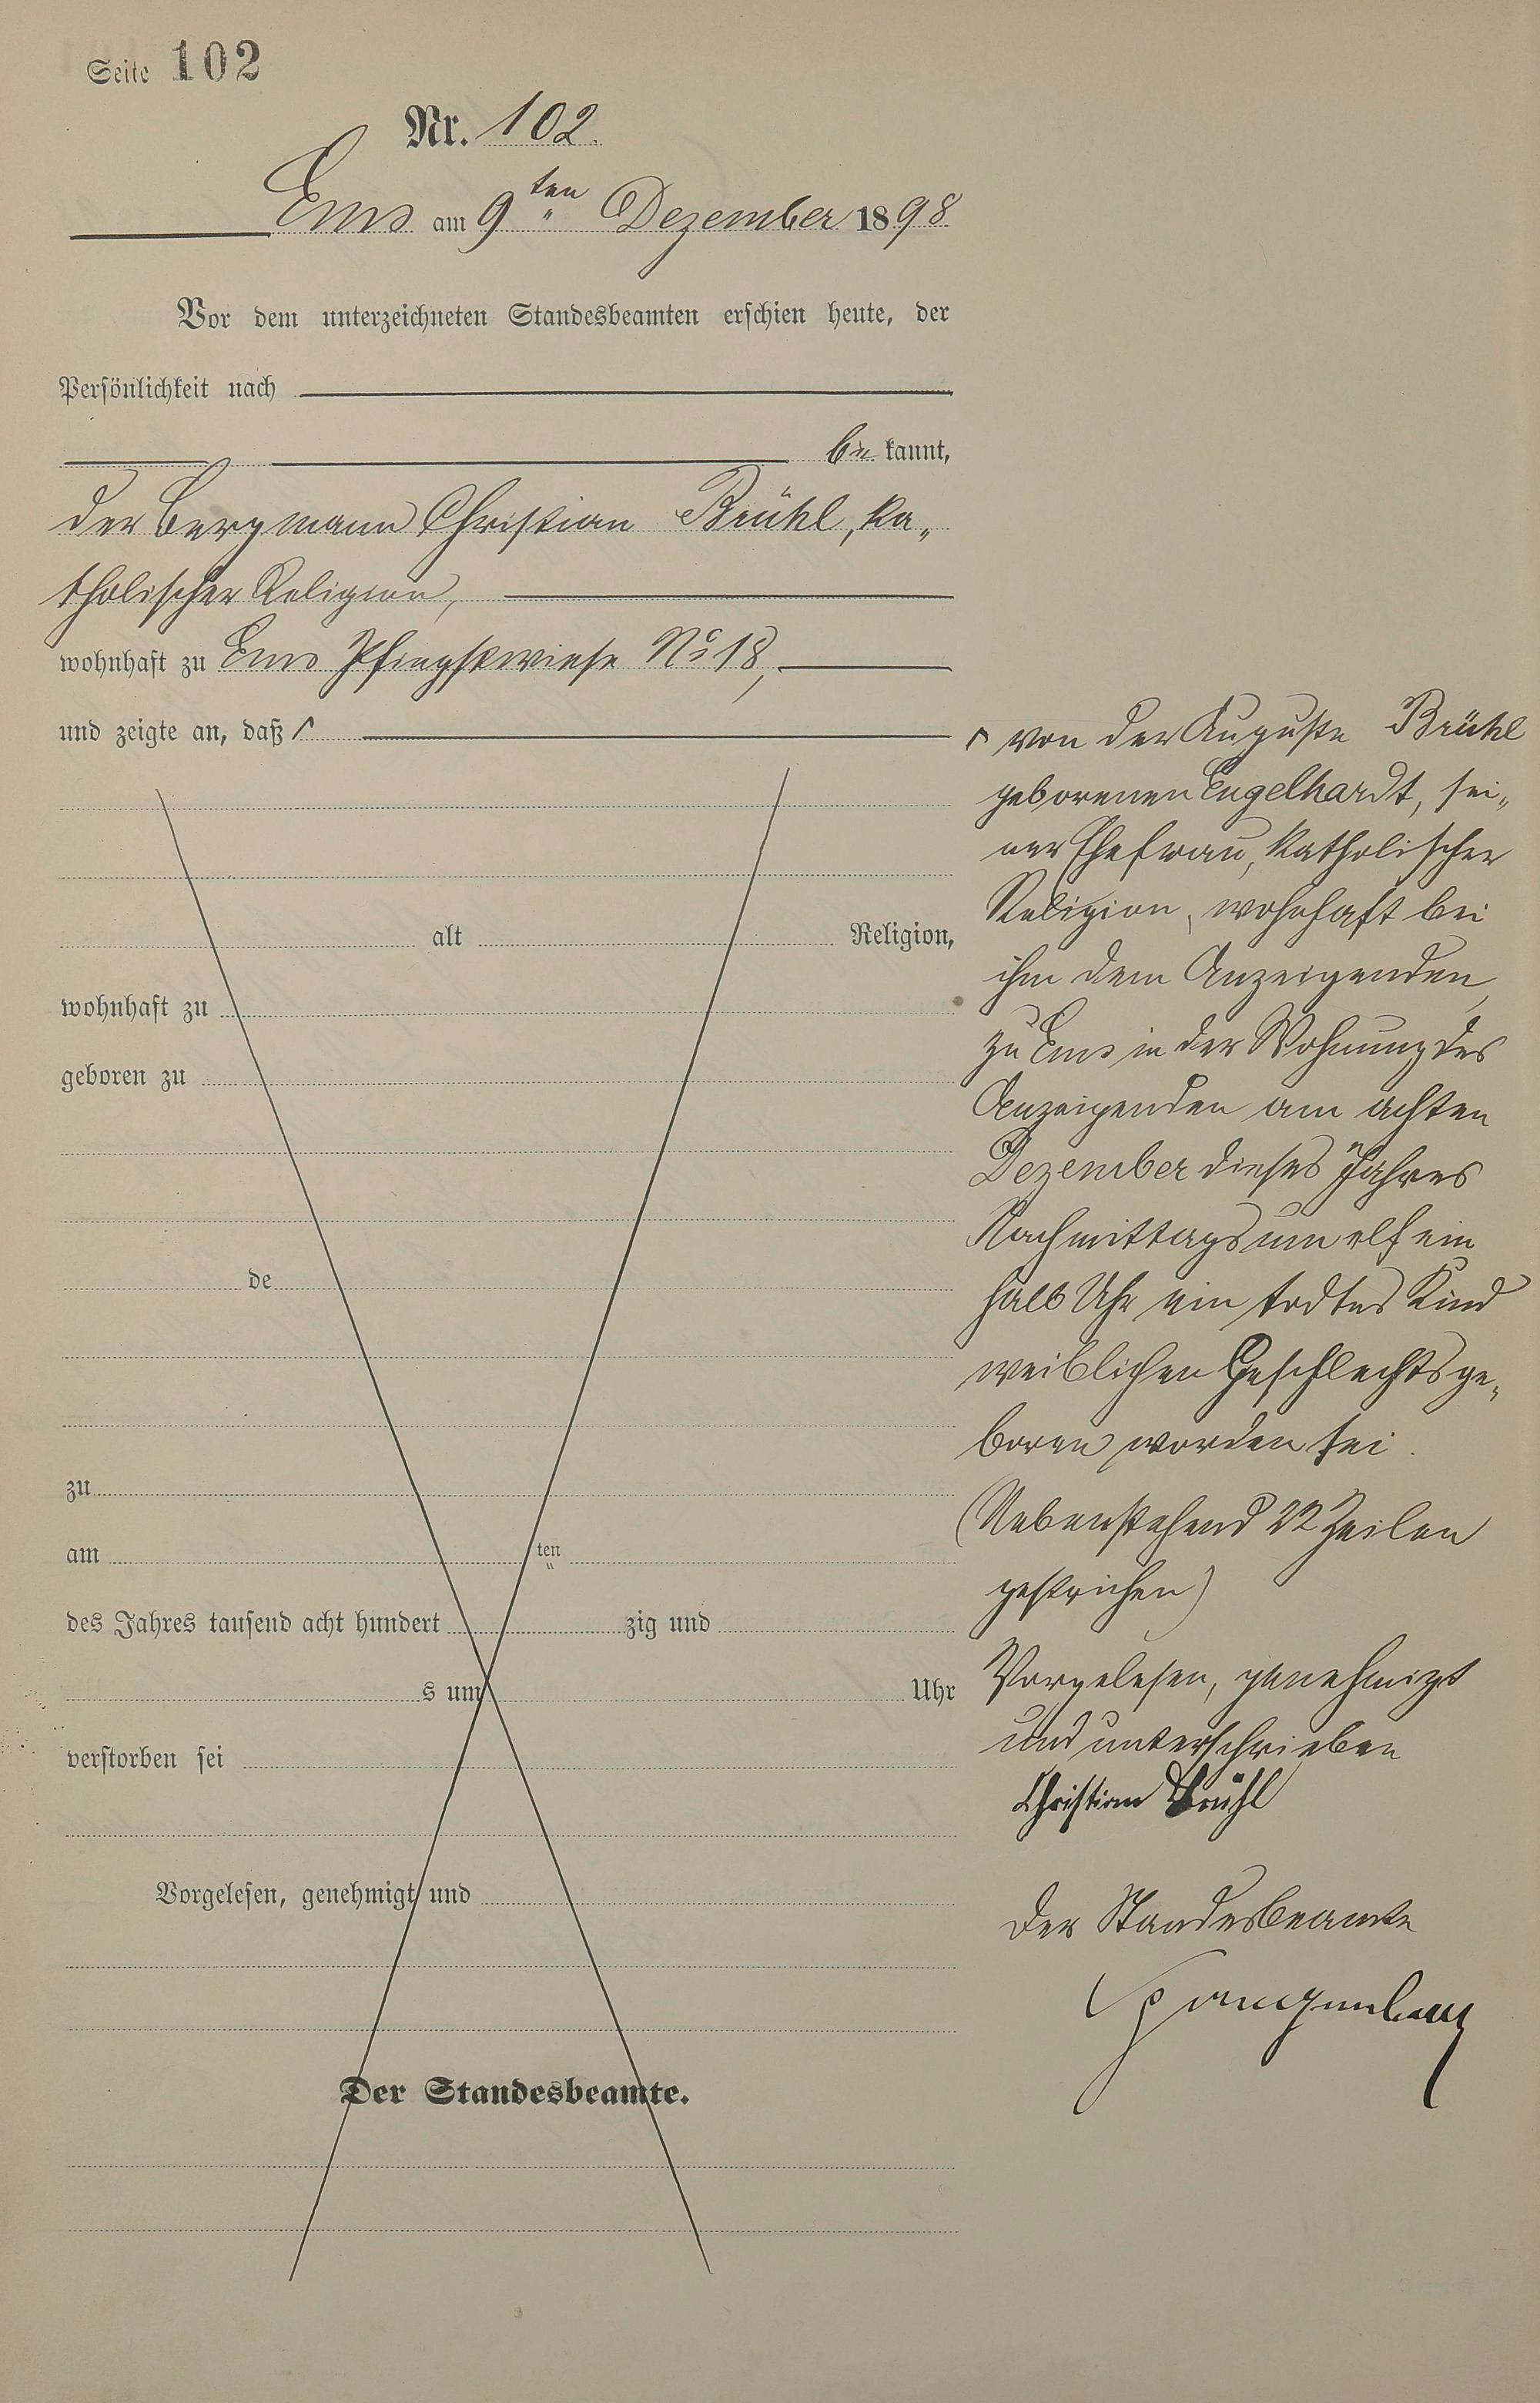 Seite 102
Nr. 102.
Ems am 9ten Dezember 1898
Vor dem unterzeichneten Standesbeamten erschien heute, der
Persönlichkeit nach
be kannt,
der Bergmann Christian Brühl, ka„
tholischer Religion,
wohnhaft zu Ems Pfingstwiese No 18,
und zeigte an, daß
alt Religion,
wohnhaft zu
geboren zu
de
zu
am ten
des Jahres tausend acht hundert zig und
s um Uhr
verstorben sei
Vorgelesen, genehmigt und
Der Standesbeamte.
von der Auguste Brühl
geborenen Engelhardt, sei„
ner Ehefrau, katholischer
Religion, wohnhaft bei
ihm dem Anzeigenden,
zu Ems in der Wohnung des
Anzeigenden am achten
Dezember dieses Jahres
Nachmittags um elf ein
halb Uhr ein todtes Kind
weiblichen Geschlechts ge„
boren worden sei.
(Nebenstehend 22 Zeilen
gestrichen)
Vorgelesen, genehmigt
und unterschrieben
Christian Brühl
Der Standesbeamte